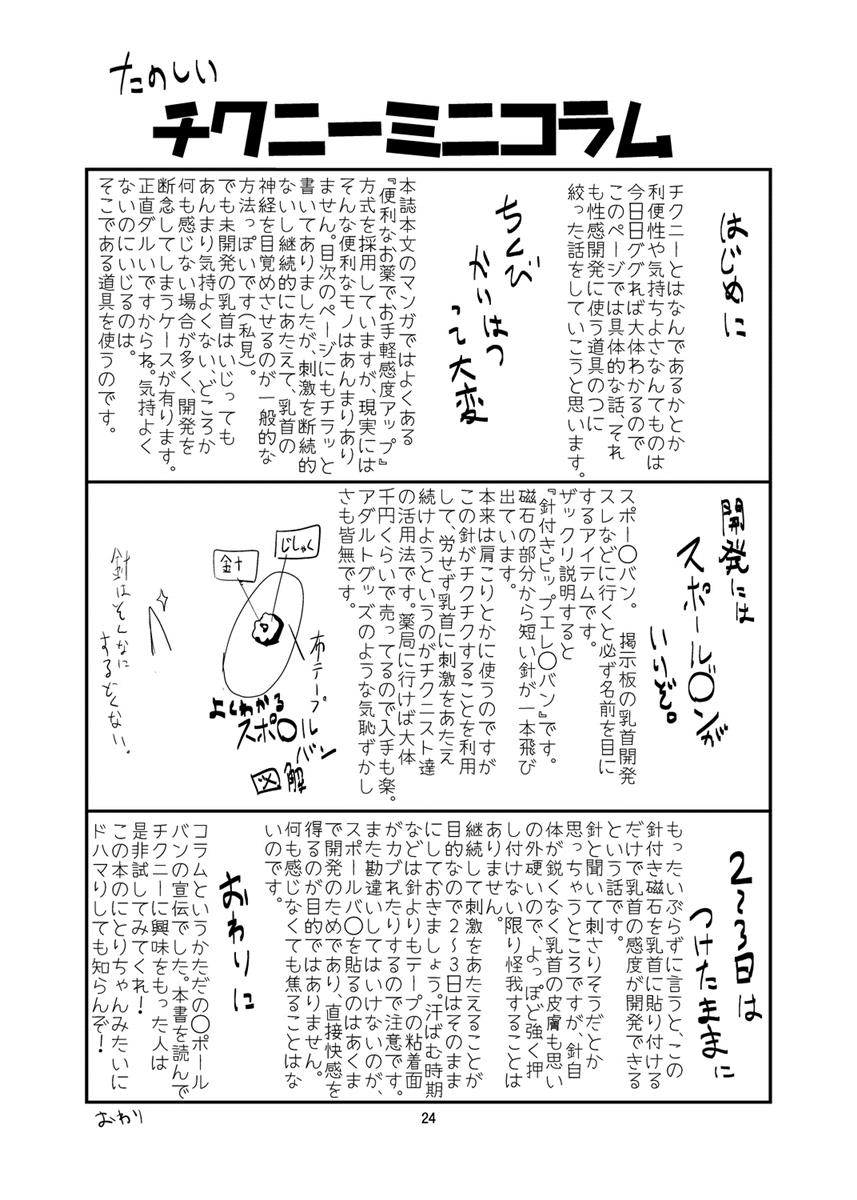 たのしい
チクニーミニコラム
はじめに
チクニーとはなんであるかとか
利便性や気持ちよさなんてものは
今日日ググれば大体わかるので
このページでは具体的な話、それ
も性感開発に使う道具のつに
絞った話をしていこうと思います。
ちくび
かいはつ
って大変
本誌本文のマンガではよくある
『便利なお薬でお手軽感度アップ』
方式を採用していますが、現実には
そんな便利なモノはあんまりあり
ません。目次のページにもチラッと
書いてありましたが、刺激を断続的
ないし継続的にあたえて、乳首の
神経を目覚めさせるのが一般的な
方法っぽいです(私見)。
でも未開発の乳首はいじっても
あんまり気持よくない、どころか
何も感じない場合が多く、開発を
断念してしまうケースが有ります。
正直ダルいですからね。気持よく
ないのにいじるのは。
そこである道具を使うのです。
開発には
スポール〇ンが
いいぞ。
スポー〇バン。 掲示板の乳首開発
スレなどに行くと必ず名前を目に
するアイテムです。
ザックリ説明すると
『針付きピップエレ〇バン』です。
磁石の部分から短い針が一本飛び
出ています。
本来は肩こりとかに使うのですが
この針がチクチクすることを利用
して、労せず乳首に刺激をあたえ
続けようというのがチクニスト達
の活用法です。薬局に行けば大体
千円くらいで売ってるので入手も楽。
アダルトグッズのような気恥ずかし
さも皆無です。
じしゃく
針
布テープ
よくわかる
スポ〇ル
バン
図解
針はそんなに
するどくない。
2~3日は
つけたままに
もったいぶらずに言うと、この
針付き磁石を乳首に貼り付ける
だけで乳首の感度が開発できる
という話です。
針と聞いて刺さりそうだとか
思っちゃうところですが、針自
体が鋭くなく乳首の皮膚も思い
の外硬いので、よっぽど強く押
し付けない限り怪我することは
ありません。
継続して刺激をあたえることが
目的なので2~3日はそのまま
にしておきましょう。汗ばむ時期
などは針よりもテープの粘着面
がカブれたりするので注意です。
また勘違いしてはいけないのが、
スポールバ〇を貼るのはあくま
で開発のためであり、直接快感を
得るのが目的ではありません。
何も感じなくても焦ることはな
いのです。
おわりに
コラムというかただの〇ポール
バンの宣伝でした。本書を読んで
チクニーに興味をもった人は
是非試してみてくれ!
この本のにとりちゃんみたいに
ドハマりしても知らんぞ!
おわり
24